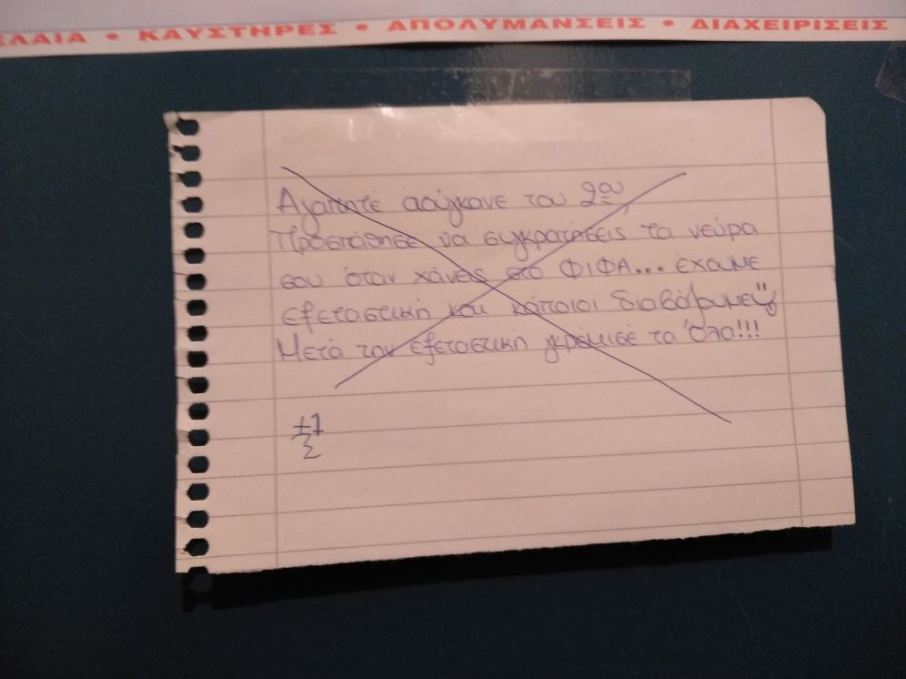 ΕΛΑΙΑ • ΚΑΥΣΤΗΡΕΣ • ΑΠΟΛΥΜΑΝΣΕΙΣ • ΔΙΑΧΕΙΡΙΣΕΙΣ
Αγαπητέ αούγκανε του 2ου
Προσπάθησε να συγκρατήσεις τα νεύρα
σου όταν χάνεις στο ΦΙΦΑ... έχουμε
εξεταστική και κάποιοι διαβάζουμε
Μετά την εξεταστική γκρέμισέ το όλο!!!
+1
Σ